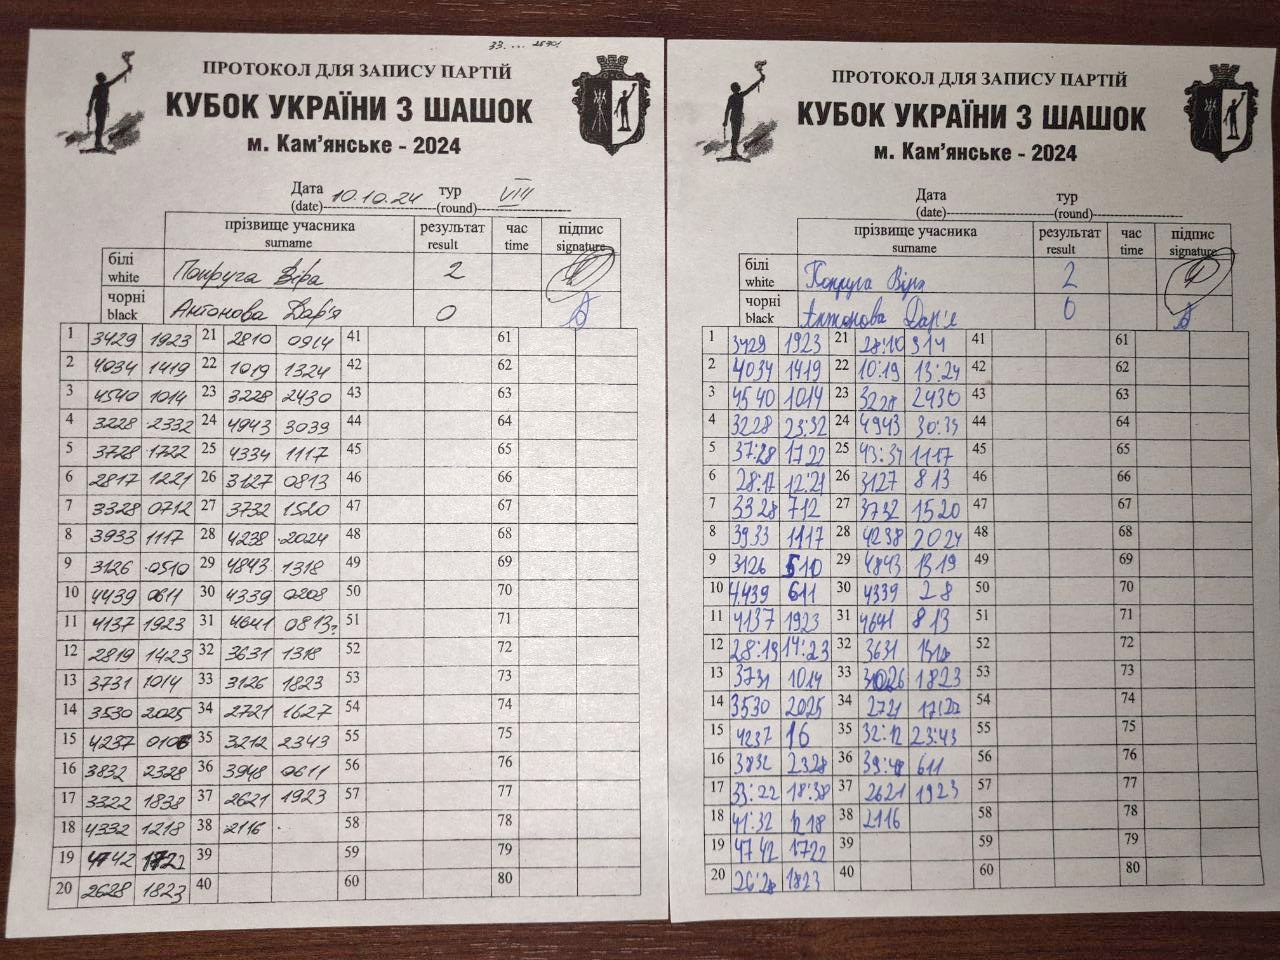 33. ... 26??!
ПРОТОКОЛ ДЛЯ ЗАПИСУ ПАРТІЙ
КУБОК УКРАЇНИ З ШАШОК
м. Кам'янське - 2024
Дата 10.10.24 тур VIII
(date) (round)
прізвище учасника результат час підпис
surname result time signature
білі white Попруга Віра 2
чорні black Антонова Дар'я 0
1 3429 1923 21 2810 0914 41 61
2 4034 1419 22 1019 1324 42 62
3 4540 1014 23 3228 2430 43 63
4 3228 2332 24 4943 3039 44 64
5 3728 1722 25 4334 1117 45 65
6 2817 1221 26 3127 0813 46 66
7 3328 0712 27 3732 1520 47 67
8 3933 1117 28 4238 2024 48 68
9 3126 0510 29 4843 1318 49 69
10 4439 0611 30 4339 0208 50 70
11 4137 1923 31 4641 0813? 51 71
12 2819 1423 32 3631 1318 52 72
13 3731 1014 33 3126 1823 53 73
14 3530 2025 34 2721 1627 54 74
15 4237 0106 35 3212 2343 55 75
16 3832 2328 36 3948 0611 56 76
17 3322 1838 37 2621 1923 57 77
18 4332 1218 38 2116 58 78
19 4742 1722 39 59 79
20 2628 1823 40 60 80
ПРОТОКОЛ ДЛЯ ЗАПИСУ ПАРТІЙ
КУБОК УКРАЇНИ З ШАШОК
м. Кам'янське - 2024
Дата тур
(date) (round)
прізвище учасника результат час підпис
surname result time signature
білі white Попруга Віра 2
чорні black Антонова Дар'я 0
1 3429 1923 21 28:10 314 41 61
2 4034 1419 22 10:19 13:24 42 62
3 4540 1014 23 3228 2430 43 63
4 3228 23:32 24 4943 30:39 44 64
5 37:28 1722 25 43:34 1117 45 65
6 28:17 12:21 26 3127 813 46 66
7 3328 712 27 3732 1520 47 67
8 3933 1117 28 4238 2024 48 68
9 3126 510 29 4843 1319 49 69
10 4439 611 30 4339 28 50 70
11 4137 1923 31 4641 813 51 71
12 28:19 14:23 32 3631 1318 52 72
13 3731 1014 33 26 1823 53 73
14 3530 2025 34 2721 17:27 54 74
15 4237 16 35 32:12 23:43 55 75
16 3832 2328 36 39:48 611 56 76
17 33:22 18:38 37 2621 1923 57 77
18 41:32 1218 38 2116 58 78
19 4742 1722 39 59 79
20 26:28 1823 40 60 80